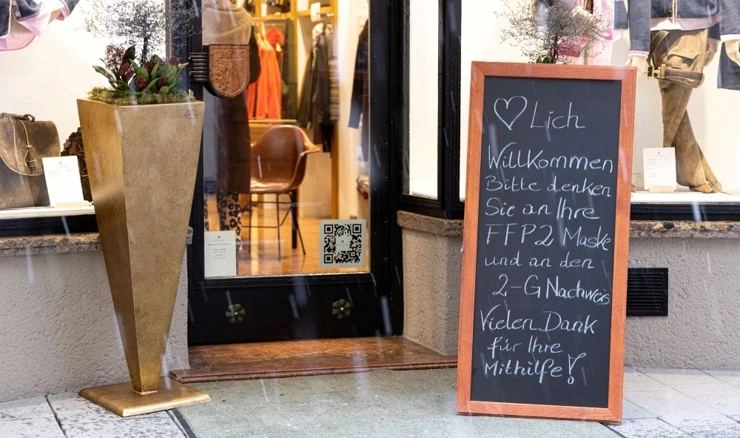 ♡Lich
Willkommen
Bitte denken
Sie an Ihre
FFP2 Maske
und an den
2-G Nachweis
Vielen Dank
für Ihre
Mithilfe!